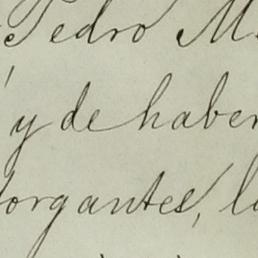 Pedro M
y de haber
organtes, l